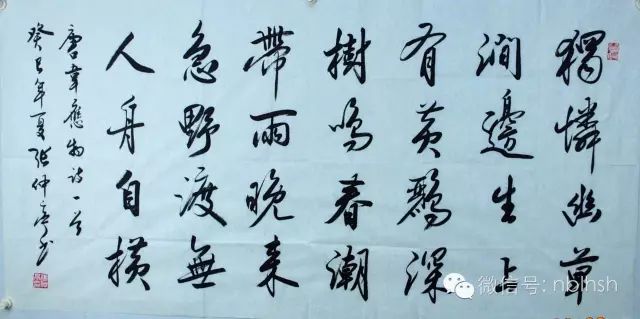 獨憐幽草
澗邊生上
有黃鸝深
樹鳴春潮
帶雨晚來
急野渡無
人舟自橫
唐韋應物詩一首
癸巳年夏張仲亭书
微信号: nblnsh